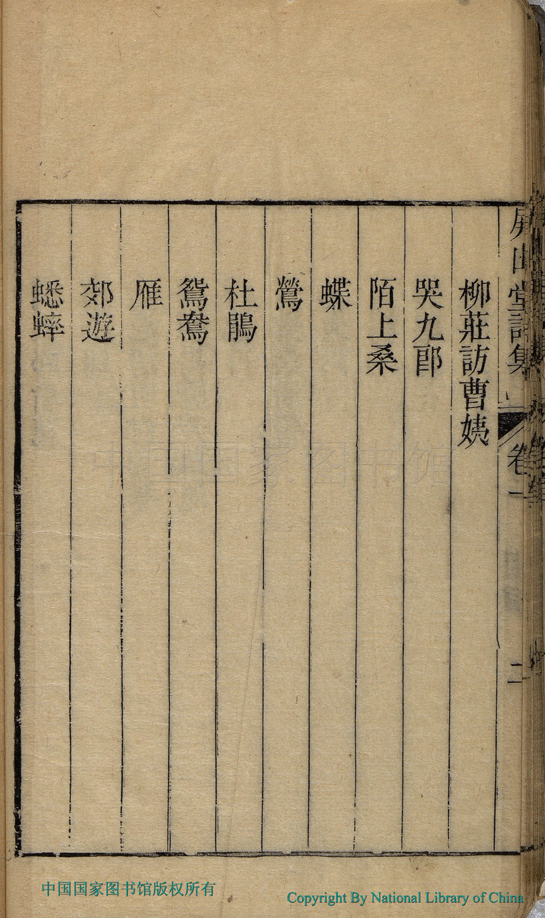 屏山堂詩集
卷一
二
柳莊訪曹姨
哭九郎
陌上桑
蝶
鶯
杜鵑
鴛鴦
雁
郊遊
蟋蟀
中国国家图书馆
中国国家图书馆版权所有
Copyright By National Library of China